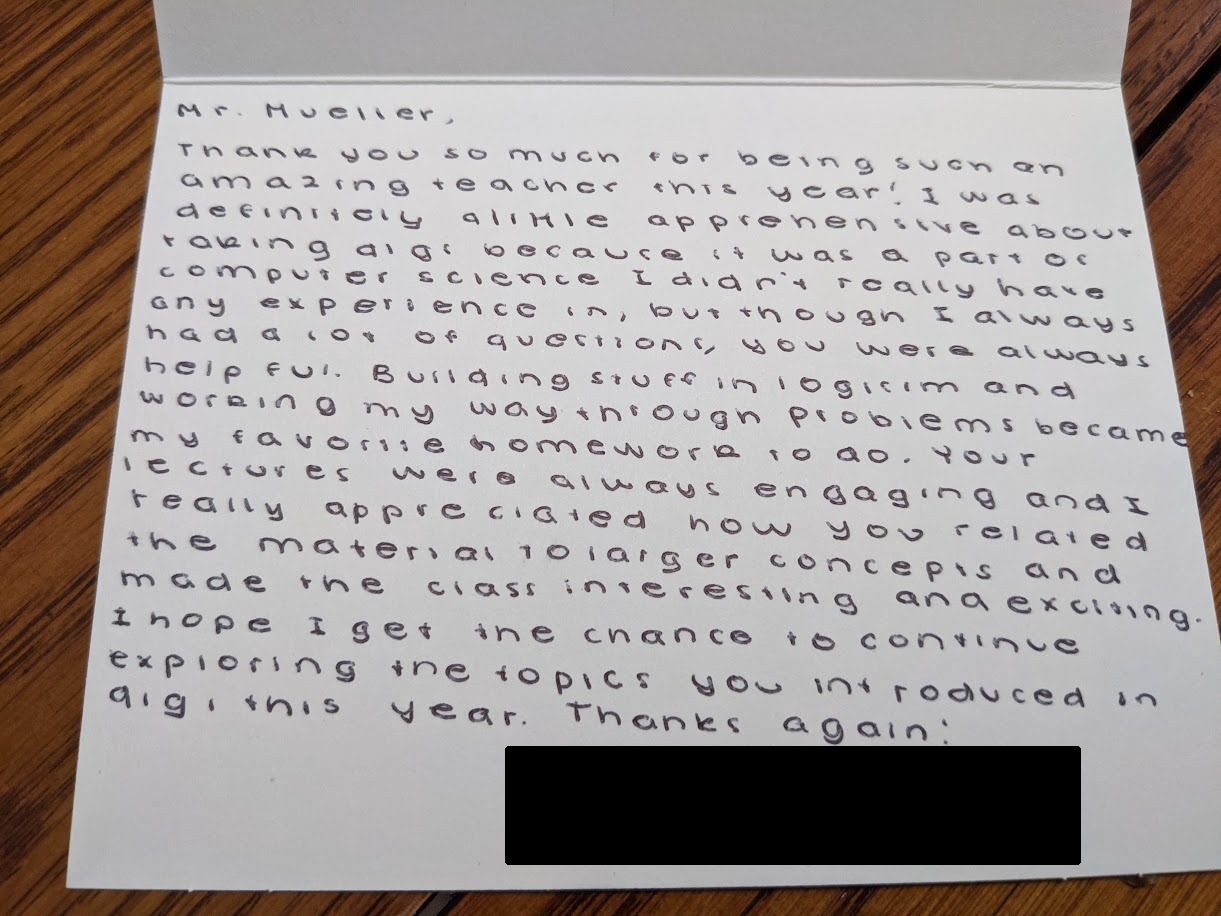 Mr. Mueller,
Thank you so much for being such an
amazing teacher this year! I was
definitely alittle apprehensive about
taking digi because it was a part of
computer science I didn't really have
any experience in, but though I always
had a lot of questions, you were always
helpful. Building stuff in logisim and
working my way through problems became
my favorite homework to do. Your
lectures were always engaging and I
really appreciated how you related
the material to larger concepts and
made the class interesting and exciting.
I hope I get the chance to continue
exploring the topics you introduced in
digi this year. Thanks again!